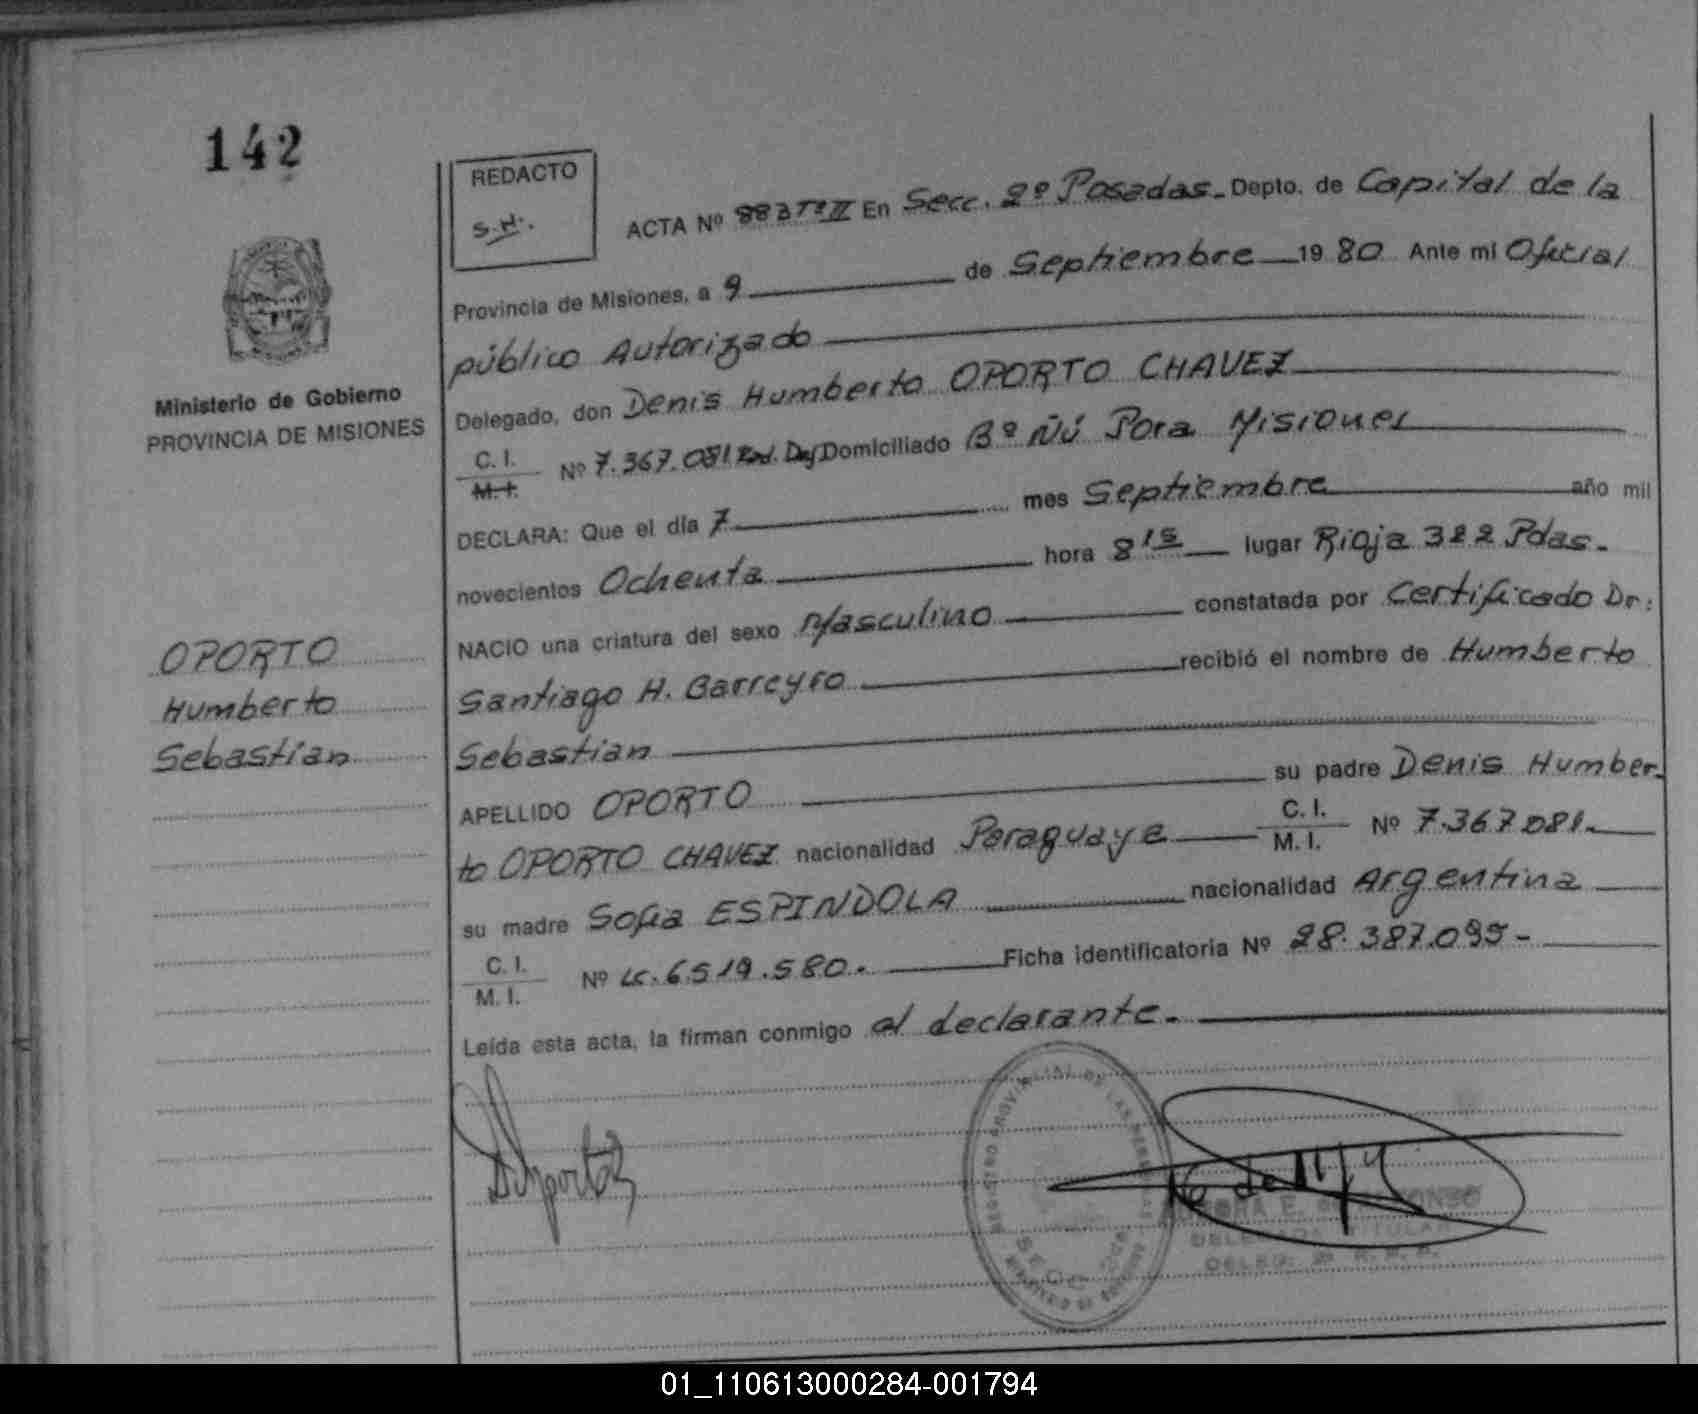 142
REDACTO
S.H.
ACTA Nº 883 Tº II En Secc. 2º Posadas. Depto. de Capital de la
Provincia de Misiones, a 9 de Septiembre 1980 Ante mi Oficial
público Autorizado
Delegado, don Denis Humberto OPORTO CHAVEZ
C. I.
M. I.
Nº 7.367.081 Domiciliado Bº Ñú Pora Misiones
DECLARA: Que el día 7 mes Septiembre año mil
novecientos Ochenta hora 8 15 lugar Rioja 322 Pdas.
NACIO una criatura del sexo Masculino constatada por Certificado Dr:
Santiago H. Barreyro recibió el nombre de Humberto
Sebastian
APELLIDO OPORTO su padre Denis Humber-
to OPORTO CHAVEZ nacionalidad Paraguaya C. I. M. I. Nº 7.367.081.
su madre Sofia ESPINDOLA nacionalidad Argentina
C. I.
M. I.
Nº LC. 6.519.580. Ficha identificatoria Nº 28.387.095-
Leída esta acta, la firman conmigo el declarante.
Ministerio de Gobierno
PROVINCIA DE MISIONES
OPORTO
Humberto
Sebastian
REGISTRO PROVINCIAL DE LAS PERSONAS
SECC. 2da.
MINISTERIO DE GOBIERNO
DELEGADA TITULAR
DELEG. 2ª R. P. P.
01_110613000284-001794